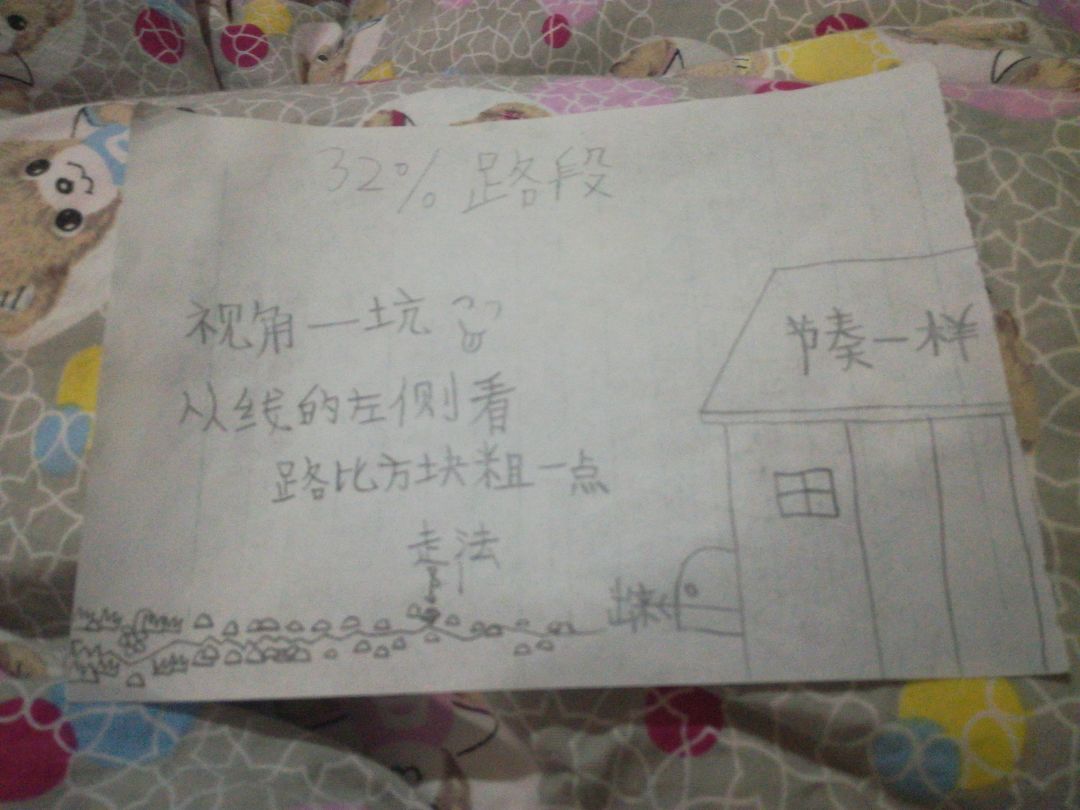 32% 路段
视角一坑
从线的左侧看
路比方块粗一点
走法
节奏一样
出来